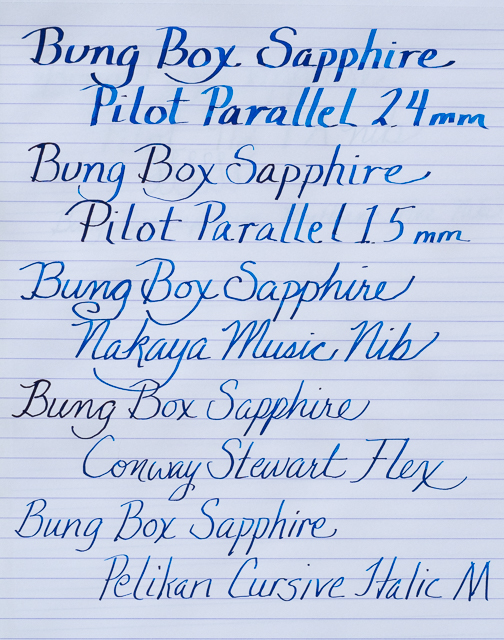 Bung Box Sapphire
Pilot Parallel 2.4 mm
Bung Box Sapphire
Pilot Parallel 1.5 mm
Bung Box Sapphire
Nakaya Music Nib
Bung Box Sapphire
Conway Stewart Flex
Bung Box Sapphire
Pelikan Cursive Italic M